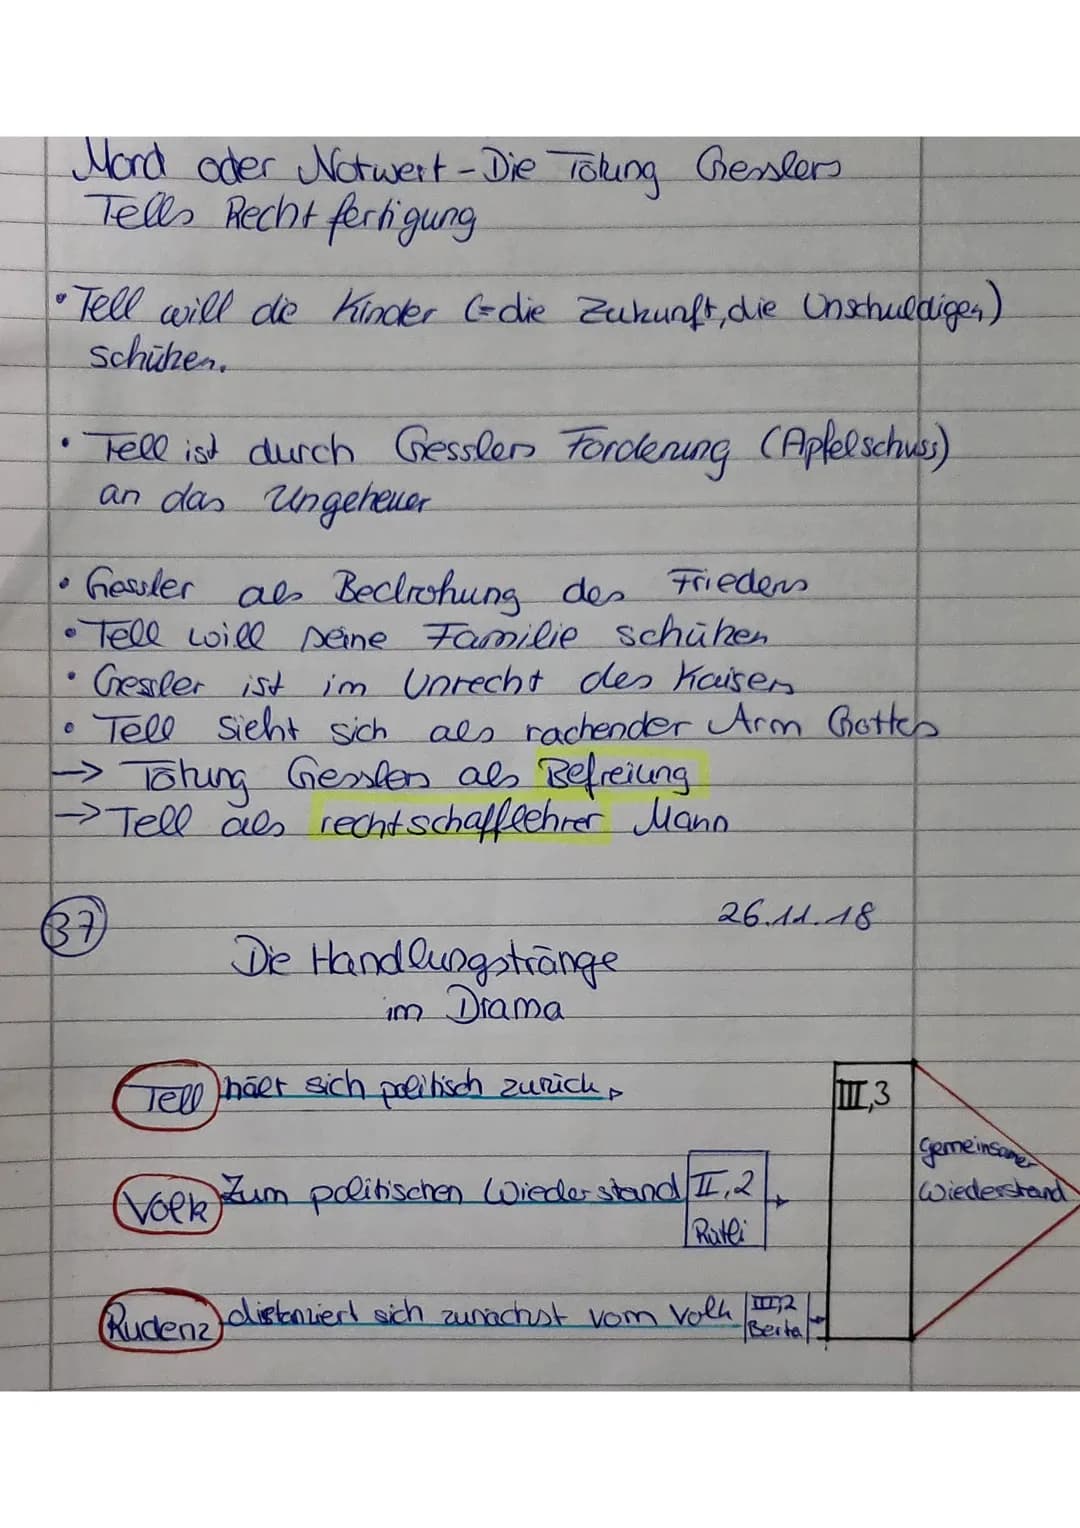 Mord oder Notwert - Die Tötung Gesslers
Tells Rechtfertigung
• Tell will die Kinder (=die Zukunft, die Unschuldigen)
schützen.
• Tell ist durch Gesslers Forderung (Apfelschuss)
an das Ungeheuer
• Gessler als Bedrohung des Friedens
• Tell will seine Familie schützen
• Gessler ist im Unrecht des Kaisers
• Tell sieht sich als rachender Arm Gottes
→ Tötung Gesslers als Befreiung
→ Tell als rechtschafflehrer Mann
37
26.11.18
Die Handlungstränge
im Drama
Tell hält sich politisch zurück
III,3
gemeinsamer
Wiederstand
Volk Zum politischen Wiederstand II,2
Rütli
Rudenz distanziert sich zunächst vom Volk III,2
Berta